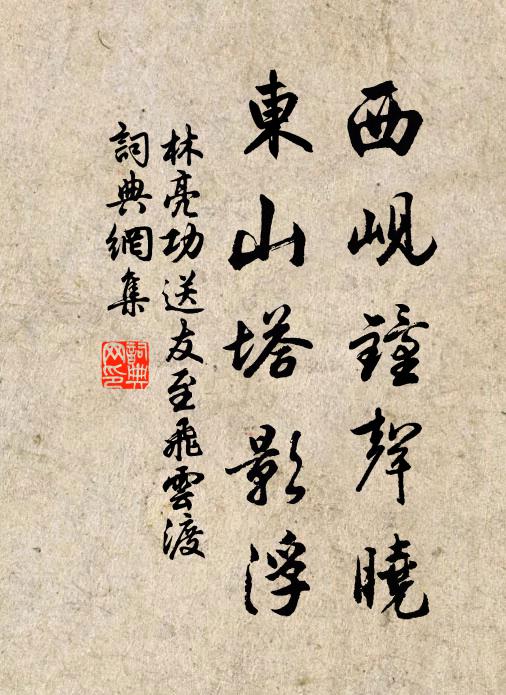 西峴鐘聲曉
東山塔影浮
林亮功送友至飛雲渡
詞典網集
詞典
网印